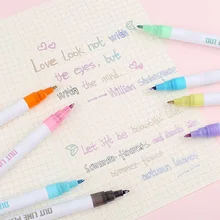 Love Look not with
the eyes, but
with the mind.
William Shakespeare
Let life be beautiful like
summer flowers and death like
autumn leaves
OUT LINE
OUT LINE
OUT LINE